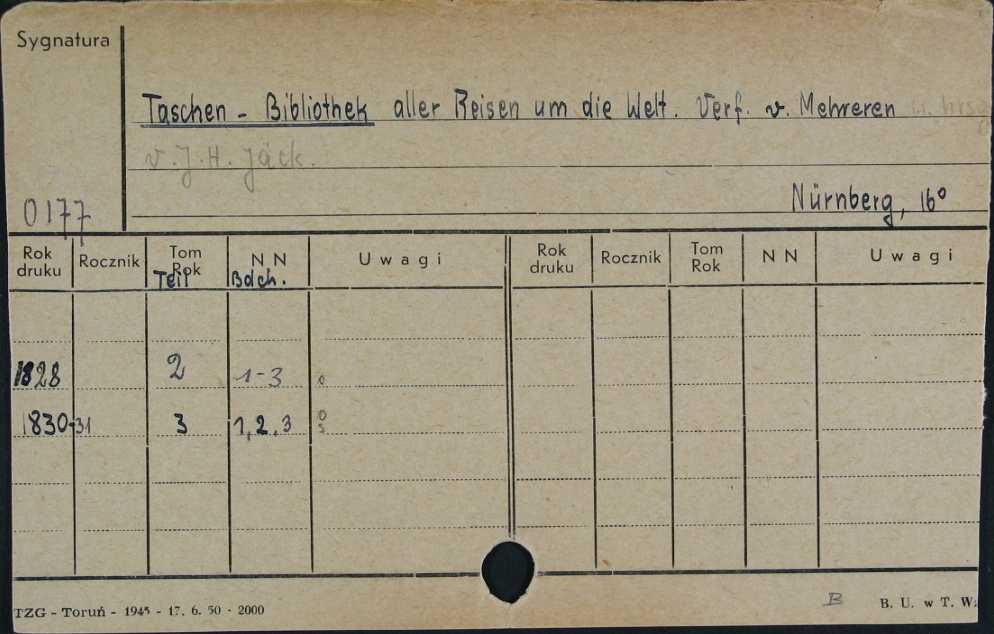 Sygnatura
Taschen - Bibliothek aller Reisen um die Welt. Verf. v. Mehreren u. hrsg
v. J. H. Jäck.
Nürnberg, 16°
0177
Rok druku Rocznik Tom Rok Teil N N Bdch. Uwagi Rok druku Rocznik Tom Rok N N Uwagi
1828 2 1-3 0
1830-31 3 1, 2, 3 0
TZG - Toruń - 1945 - 17. 6. 50 - 2000 B B. U. w T. W